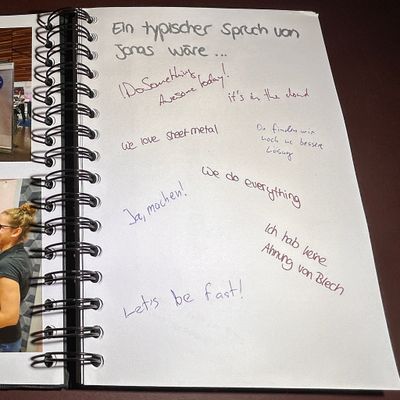 Ein typischer Spruch von
Jonas wäre ...
!Do Something
Awesome Today!
it's in the cloud
we love sheet metal
Da finden wir
noch ne bessere
Lösung
we do everything
Ja, machen!
Ich hab keine
Ahnung von Blech
Let's be fast!